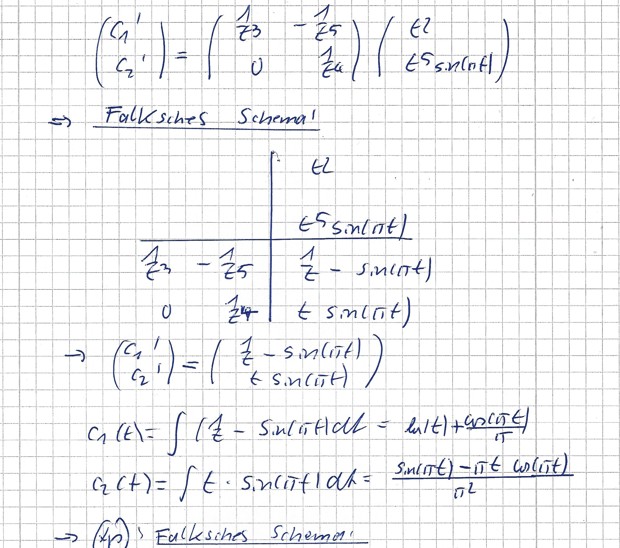 (c₁' c₂') = (1/t³ -1/t⁵ 0 1/t⁴) (t² t⁵ sin(πt))
⇒ Falksches Schema!
t²
t⁵ sin(πt)
1/t³ -1/t⁵ 1/t - sin(πt)
0 1/t⁴ t sin(πt)
→ (c₁' c₂') = (1/t - sin(πt) t sin(πt))
c₁(t) = ∫ (1/t - sin(πt) dt = ln(t) + cos(πt)/π
c₂(t) = ∫ t · sin(πt) dt = (sin(πt) - πt cos(πt))/π²
→ Falksches Schema: